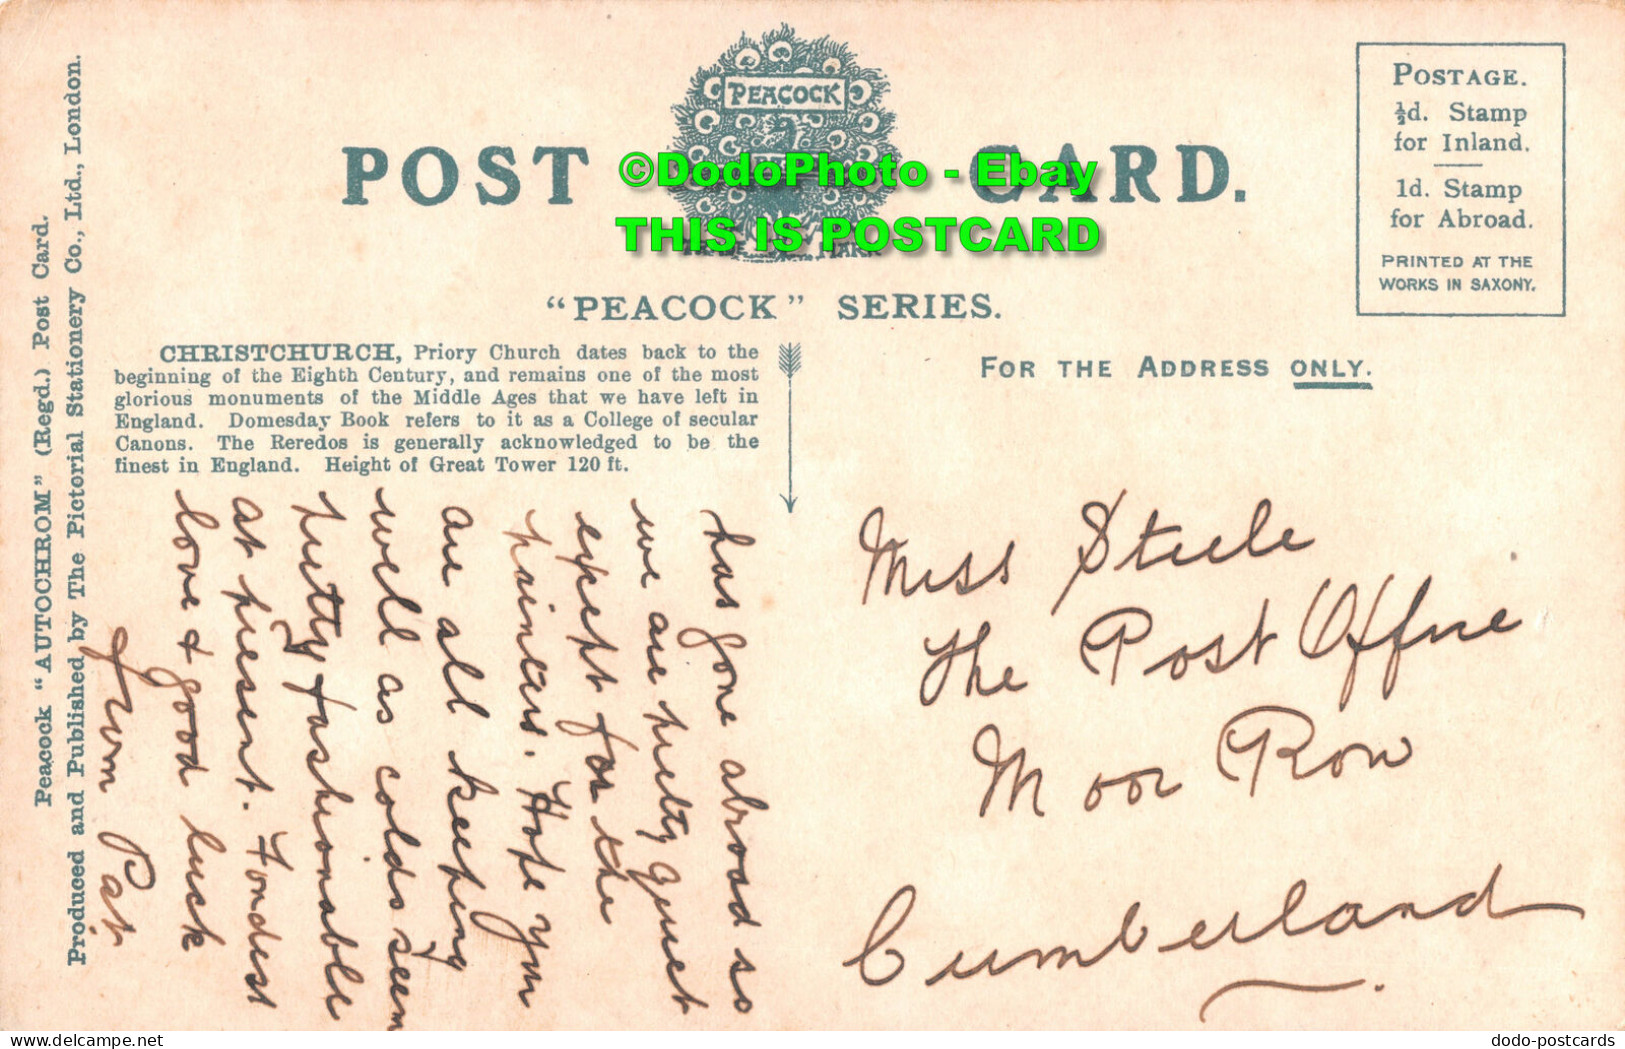 PEACOCK
POST CARD.
©DodoPhoto - Ebay
THIS IS POSTCARD
"PEACOCK" SERIES.
POSTAGE.
½d. Stamp
for Inland.
1d. Stamp
for Abroad.
PRINTED AT THE
WORKS IN SAXONY.
Peacock "AUTOCHROM" (Regd.) Post Card.
Produced and Published by The Pictorial Stationery Co., Ltd., London.
CHRISTCHURCH, Priory Church dates back to the
beginning of the Eighth Century, and remains one of the most
glorious monuments of the Middle Ages that we have left in
England. Domesday Book refers to it as a College of secular
Canons. The Reredos is generally acknowledged to be the
finest in England. Height of Great Tower 120 ft.
FOR THE ADDRESS ONLY.
has gone abroad so
we are pretty quiet
expept for the
painters. Hope you
are all keeping
well as colds seem
pretty fashionable
at present. Fondest
love + good luck
from Pat.
Miss Steele
The Post Office
Moor Row
Cumberland.
delcampe.net
dodo-postcards